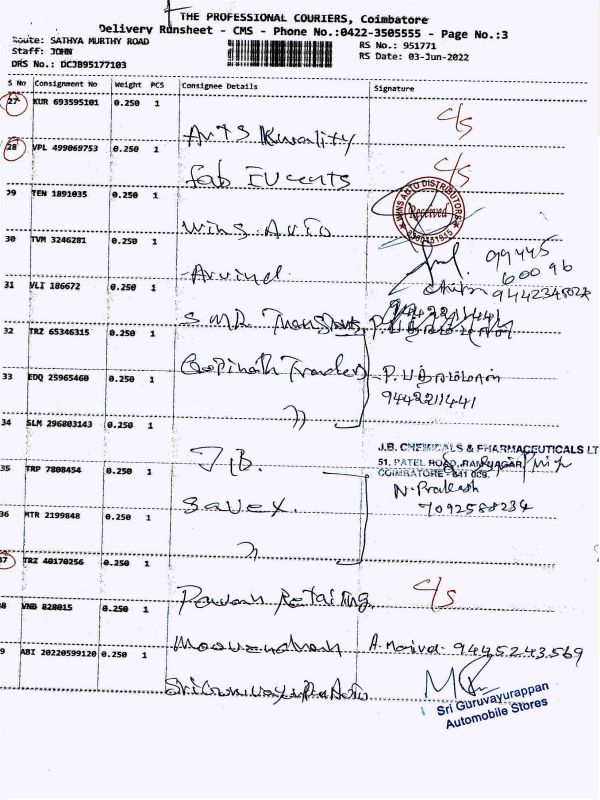 THE PROFESSIONAL COURIERS, Coimbatore
Delivery Runsheet - CMS - Phone No.:0422-3505555 - Page No.:3
Route: SATHYA MURTHY ROAD
Staff: JOHN
DRS No.: DCJB95177103
RS No.: 951771
RS Date: 03-Jun-2022
S No Consignment No Weight PCS Consignee Details Signature
27 KUR 693595101 0.250 1 C/S
Arts Kwality
28 VPL 499069753 0.250 1 C/S
fab EVents
29 TEN 1891035 0.250 1
WINS AUTO DISTRIBUTORS
Received
Wins Auto
30 TVM 3246281 0.250 1
99445
60096
Arvind
31 VLI 186672 0.250 1
SMR Transports
9442211441
32 TRZ 65346315 0.250 1
Gopinath Traders
33 EDQ 25965460 0.250 1
9442211441
"
34 SLM 296803143 0.250 1
J.B. CHEMICALS & PHARMACEUTICALS LT
51, PATEL ROAD, RAM NAGAR,
COIMBATORE - 641 009.
J.B.
35 TRP 7808454 0.250 1
N. Prakash
7092588234
Savex.
36 MTR 2199848 0.250 1
"
37 TRZ 40170256 0.250 1 C/S
Pawan Retaiing
8 VNB 828015 0.250 1
A. Mariya 9445243569
9 ABI 20220599120 0.250 1
Sri Guruvayurappan
Automobile Stores